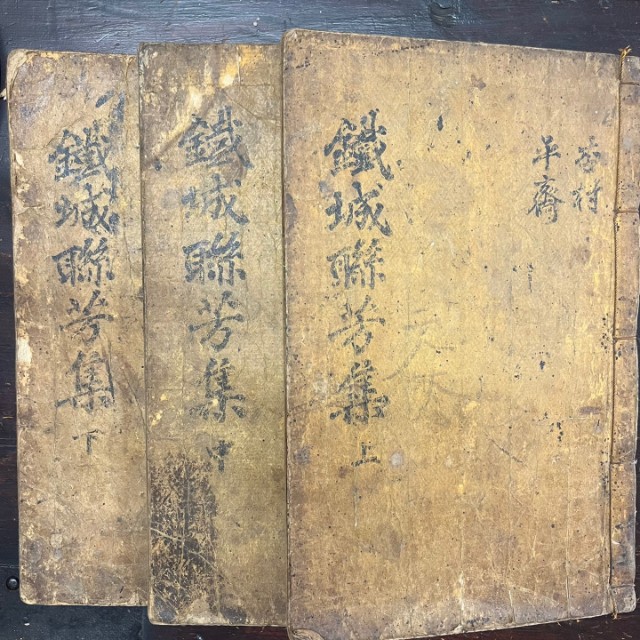 杏村
平齋
鐵城聯芳集 上
鐵城聯芳集 中
鐵城聯芳集 下